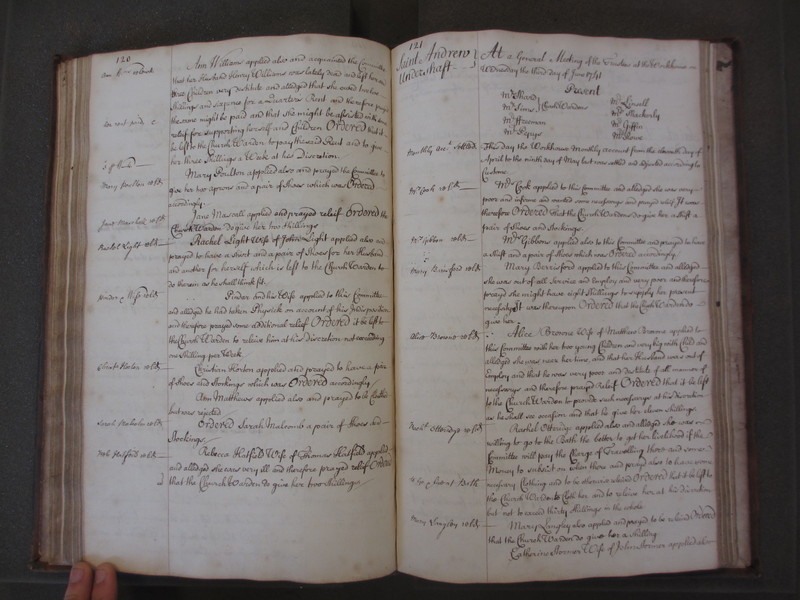 120
Ann Williams applied also and acquainted the Committee
that her Husband Henry Williams was lately dead and left her with
three Children very destitute and alledged that she owed twelve
Shillings and sixpence for a Quarters Rent and therefore prayed
the same might be paid and that she might be assisted with some
relief for supporting herself and Children Ordered that it
be left to the Church Warden to pay the said Rent and to give
her three Shillings a Week at his Discretion.
Mary Poulton rel'd.
Mary Poulton applied also and prayed the Committee to
give her two aprons and a pair of Shoes which was Ordered
accordingly.
Jane Mascall rel'd.
Jane Mascall applied and prayed relief Ordered the
Church Warden to give her two Shillings
Rachel Light rel'd.
Rachel Light Wife of John Light applied also and
prayed to have a Shirt and a pair of Shoes for her Husband
and another for herself which is left to the Church Warden to
do therein as he shall think fit.
Pinder & Wife rel'd.
Pinder and his Wife applied to this Committee
and alledged he had taken Physick on account of his Indisposition
and therefore prayed some additional relief Ordered it be left to
the Church Warden to relieve him at his discretion not exceeding
one Shilling per Week.
Christian Horden applied and prayed to have a pair
of Shoes and Stockings which was Ordered accordingly
Ann Matthews applied also and prayed to be Cloathed
but was rejected
Ordered Sarah Malcomb a pair of Shoes and
Stockings
Reb. Hatfield rel'd.
Rebecca Hatfield Wife of Thomas Hatfield applied
and alledged she was very ill and therefore prayed relief Ordered
that the Church Warden do give her two Shillings
121
Saint Andrew
Undershaft
At a General Meeting of the Trustees at the Workhouse on
Wednesday the third day of June 1741
Present
Church Wardens
Mr. Freeman
Mr. Giffin
Mr. Pepys
Mr. Rowe
This day the Workhouse Monthly account from the eleventh day of
April to the ninth day of May last was settled and adjusted according to
Custome
Mrs. Cook rel'd.
Mrs. Cook applied to this Committee and alledged she was very
poor and infirm and wanted some necessarys and prayed relief It was
therefore Ordered that the Church Warden do give her a Shift a
pair of Shoes and Stockings.
Mrs. Gibbons rel'd.
Mrs. Gibbons applied also to this Committee and prayed to have
a Shift and a pair of Shoes which was Ordered accordingly
Mary Berrisford applied to this Committee and alledged
she was out of all Service and Employ and very poor and therefore
prayed she might have eight Shillings to supply her present
necessitys It was thereupon Ordered that the Church Warden do
give her
Alice Browne rel'd.
Alice Browne Wife of Matthew Browne applied to
this Committee with her two young Children and very big with Child and
alledged she was near her time and that her Husband was out of
Employ and that he was very poor and destitute of all manner of
necessarys and therefore prayed Relief Ordered that it be left
to the Church Warden to provide such necessarys at his discretion
as he shall see occasion and that he give her eleven Shillings.
Rach. Ottridge rel'd.
Rachel Ottridge applied also and alledged she was
willing to go to the Bath the better to get her livelihood if the
Committee will pay the Charge of Travelling there and some
Money to subsist on when there and prayed also to have some
necessary Cloathing and to be otherwise relieved Ordered that it be left to
the Church Warden to Cloth her and to relieve her at his discretion
but not to exceed thirty Shillings in the whole
Mary Langley rel'd.
Mary Langley also applied and prayed to be relieved Ordered
that the Church Warden do give her a Shilling
Catherine Stormer Wife of John Stormer applied also